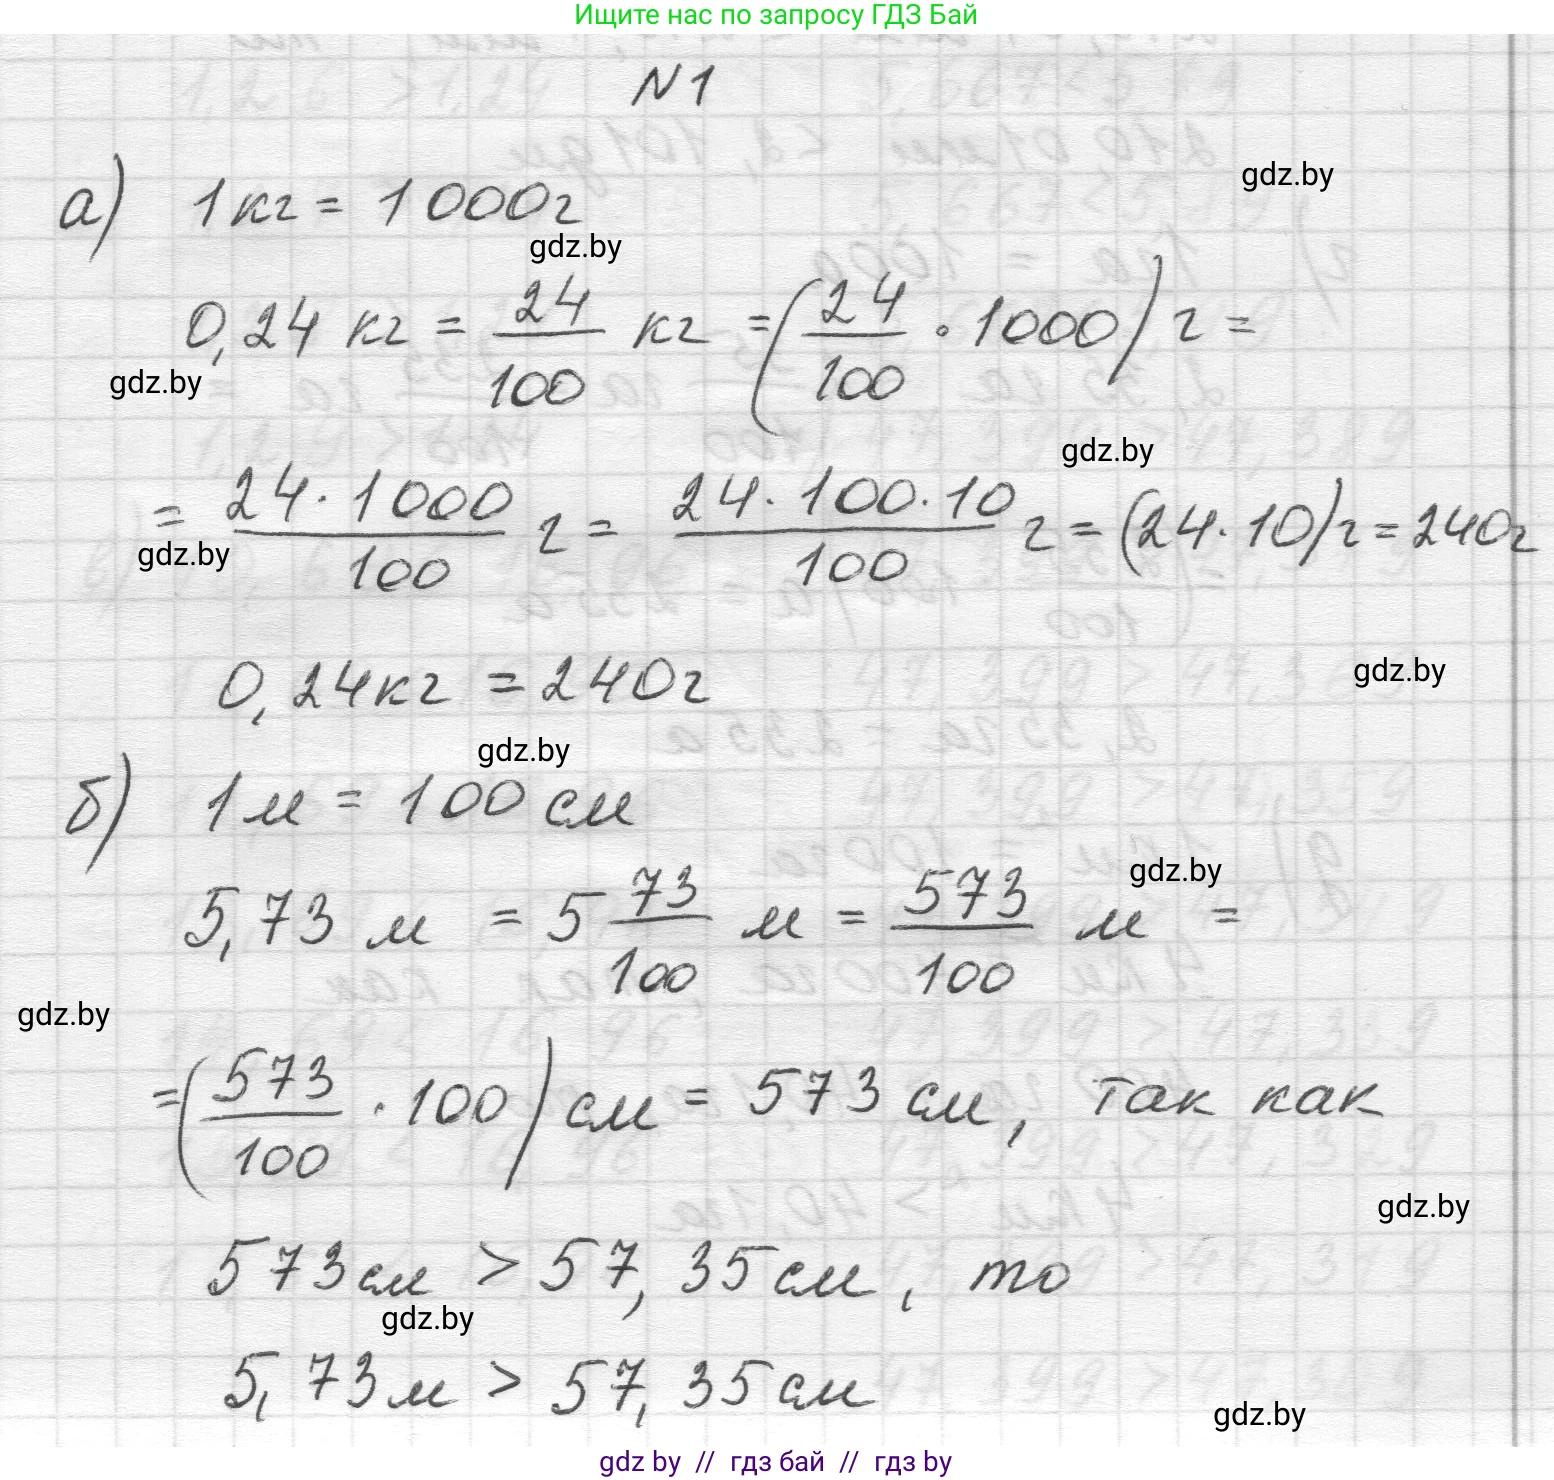 Ищите нас по запросу ГДЗ Бай
N 1
gdz.by
а) 1 кг = 1 000 г
gdz.by
0,24 кг = 24/100 кг = (24/100 · 1000) г =
gdz.by
gdz.by
= 24 · 1 000/100 г = 24 · 100 · 10/100 г = (24 · 10) г = 240 г
gdz.by
0,24 кг = 240 г
gdz.by
gdz.by
б) 1 м = 100 см
gdz.by
5,73 м = 5 73/100 м = 573/100 м =
gdz.by
= (573/100 · 100) см = 573 см, так как
gdz.by
573 см > 57,35 см, то
gdz.by
5,73 м > 57,35 см
gdz.by
gdz by // гдз бай // гдз by